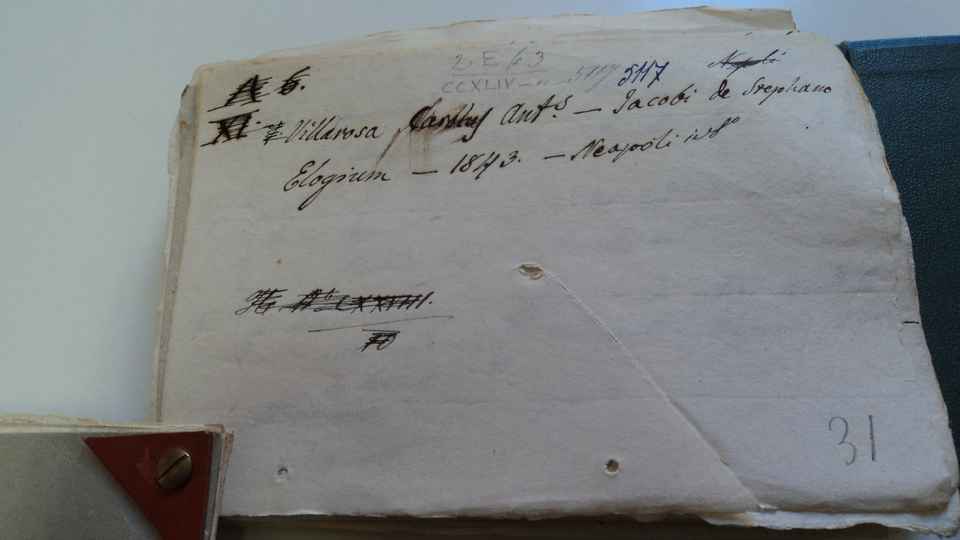 2. E 6. 3
A 6. CCXLIV 5117 5117 Napoli
XI. Villarosa Carolus Ant.s — Jacobi de Stephano
Elogium — 1843. — Neapoli in 8º
LXXVIII.
31